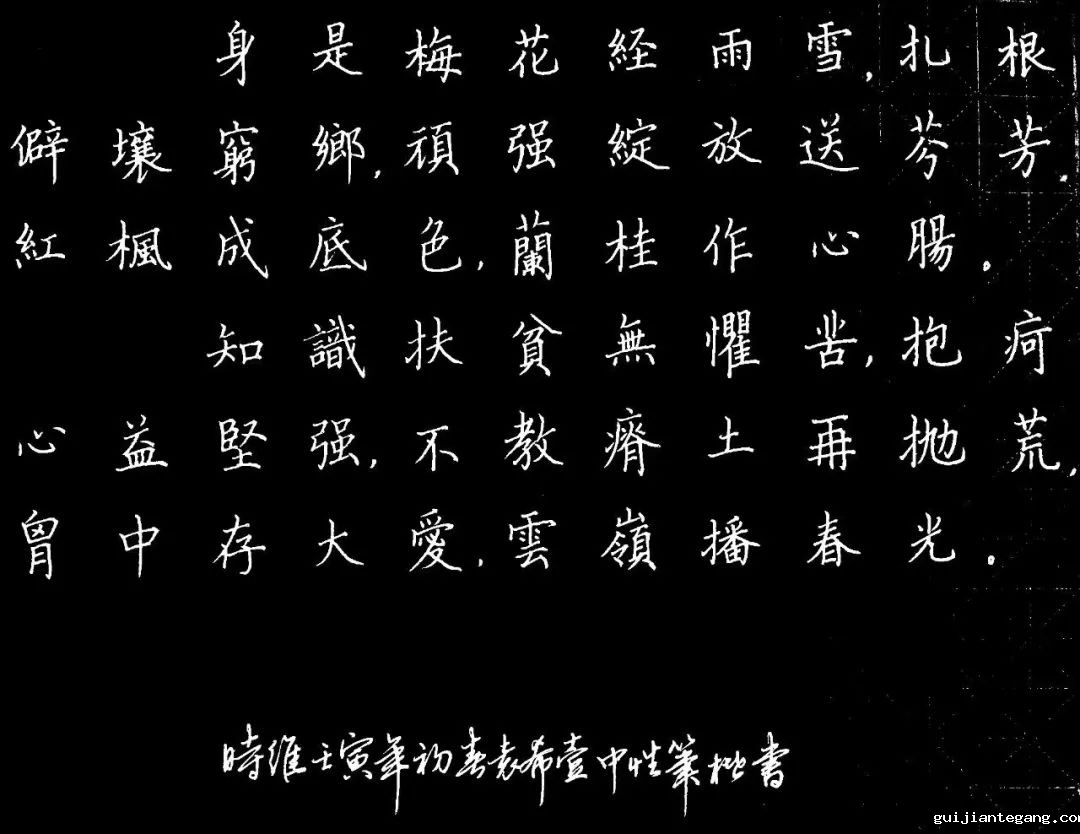 身是梅花経雨雪,扎根
僻壤窮鄉,頑强綻放送芬芳.
紅楓成底色,蘭桂作心腸.
知識扶貧無懼苦,抱疴
心益堅强,不教瘠土再抛荒,
胷中存大愛,雲嶺播春光.
時維壬寅年初春袁希壹中性筆楷書
guijiantegang.com